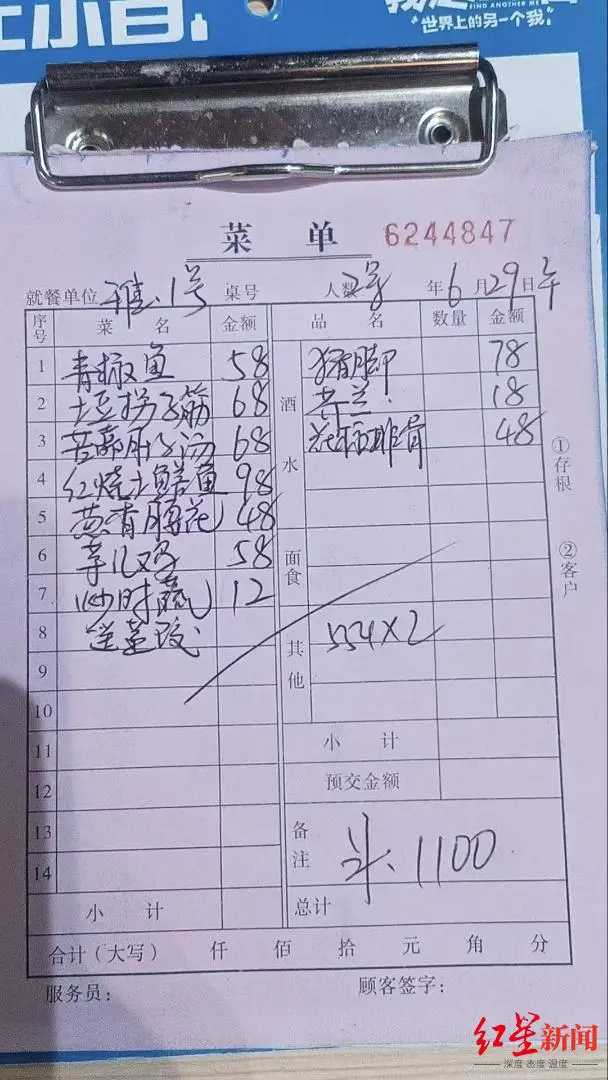 世界上的另一个我
FIND ANOTHER ME
菜单 6244847
就餐单位 雅.1号 桌号 人数 年6月29日午
序号 菜名 金额 品名 数量 金额
1 青椒鱼 58 猪脚 78
2 土豆拐子筋 68 18
3 68 排骨 48
4 红烧土鳝鱼 98
5 48
6 58
7 炒时蔬 12
8 送
9
10
11
12
13
14
酒水
面食
其他 554×2
小计
预交金额
备注 斗、1100
小计 总计
合计（大写） 仟 佰 拾 元 角 分
服务员： 顾客签字：
①存根
②客户
红星新闻
深度 态度 温度